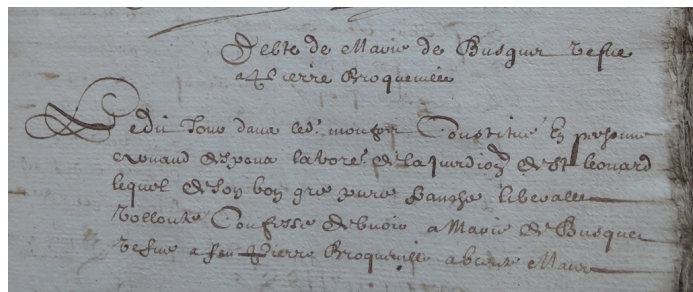 Debte de Marie de Busquet vefve
a Pierre Broqueville
Ledit Jour dans led. mongser Constitué En personne
Arnaud despous labore. de la Jurdion de St leonard
lequel de son bon gré pure franche liberalle
vollonté Confesse debvoir a Marie de Busquet
vefve a feu Pierre Broqueville absente Mais